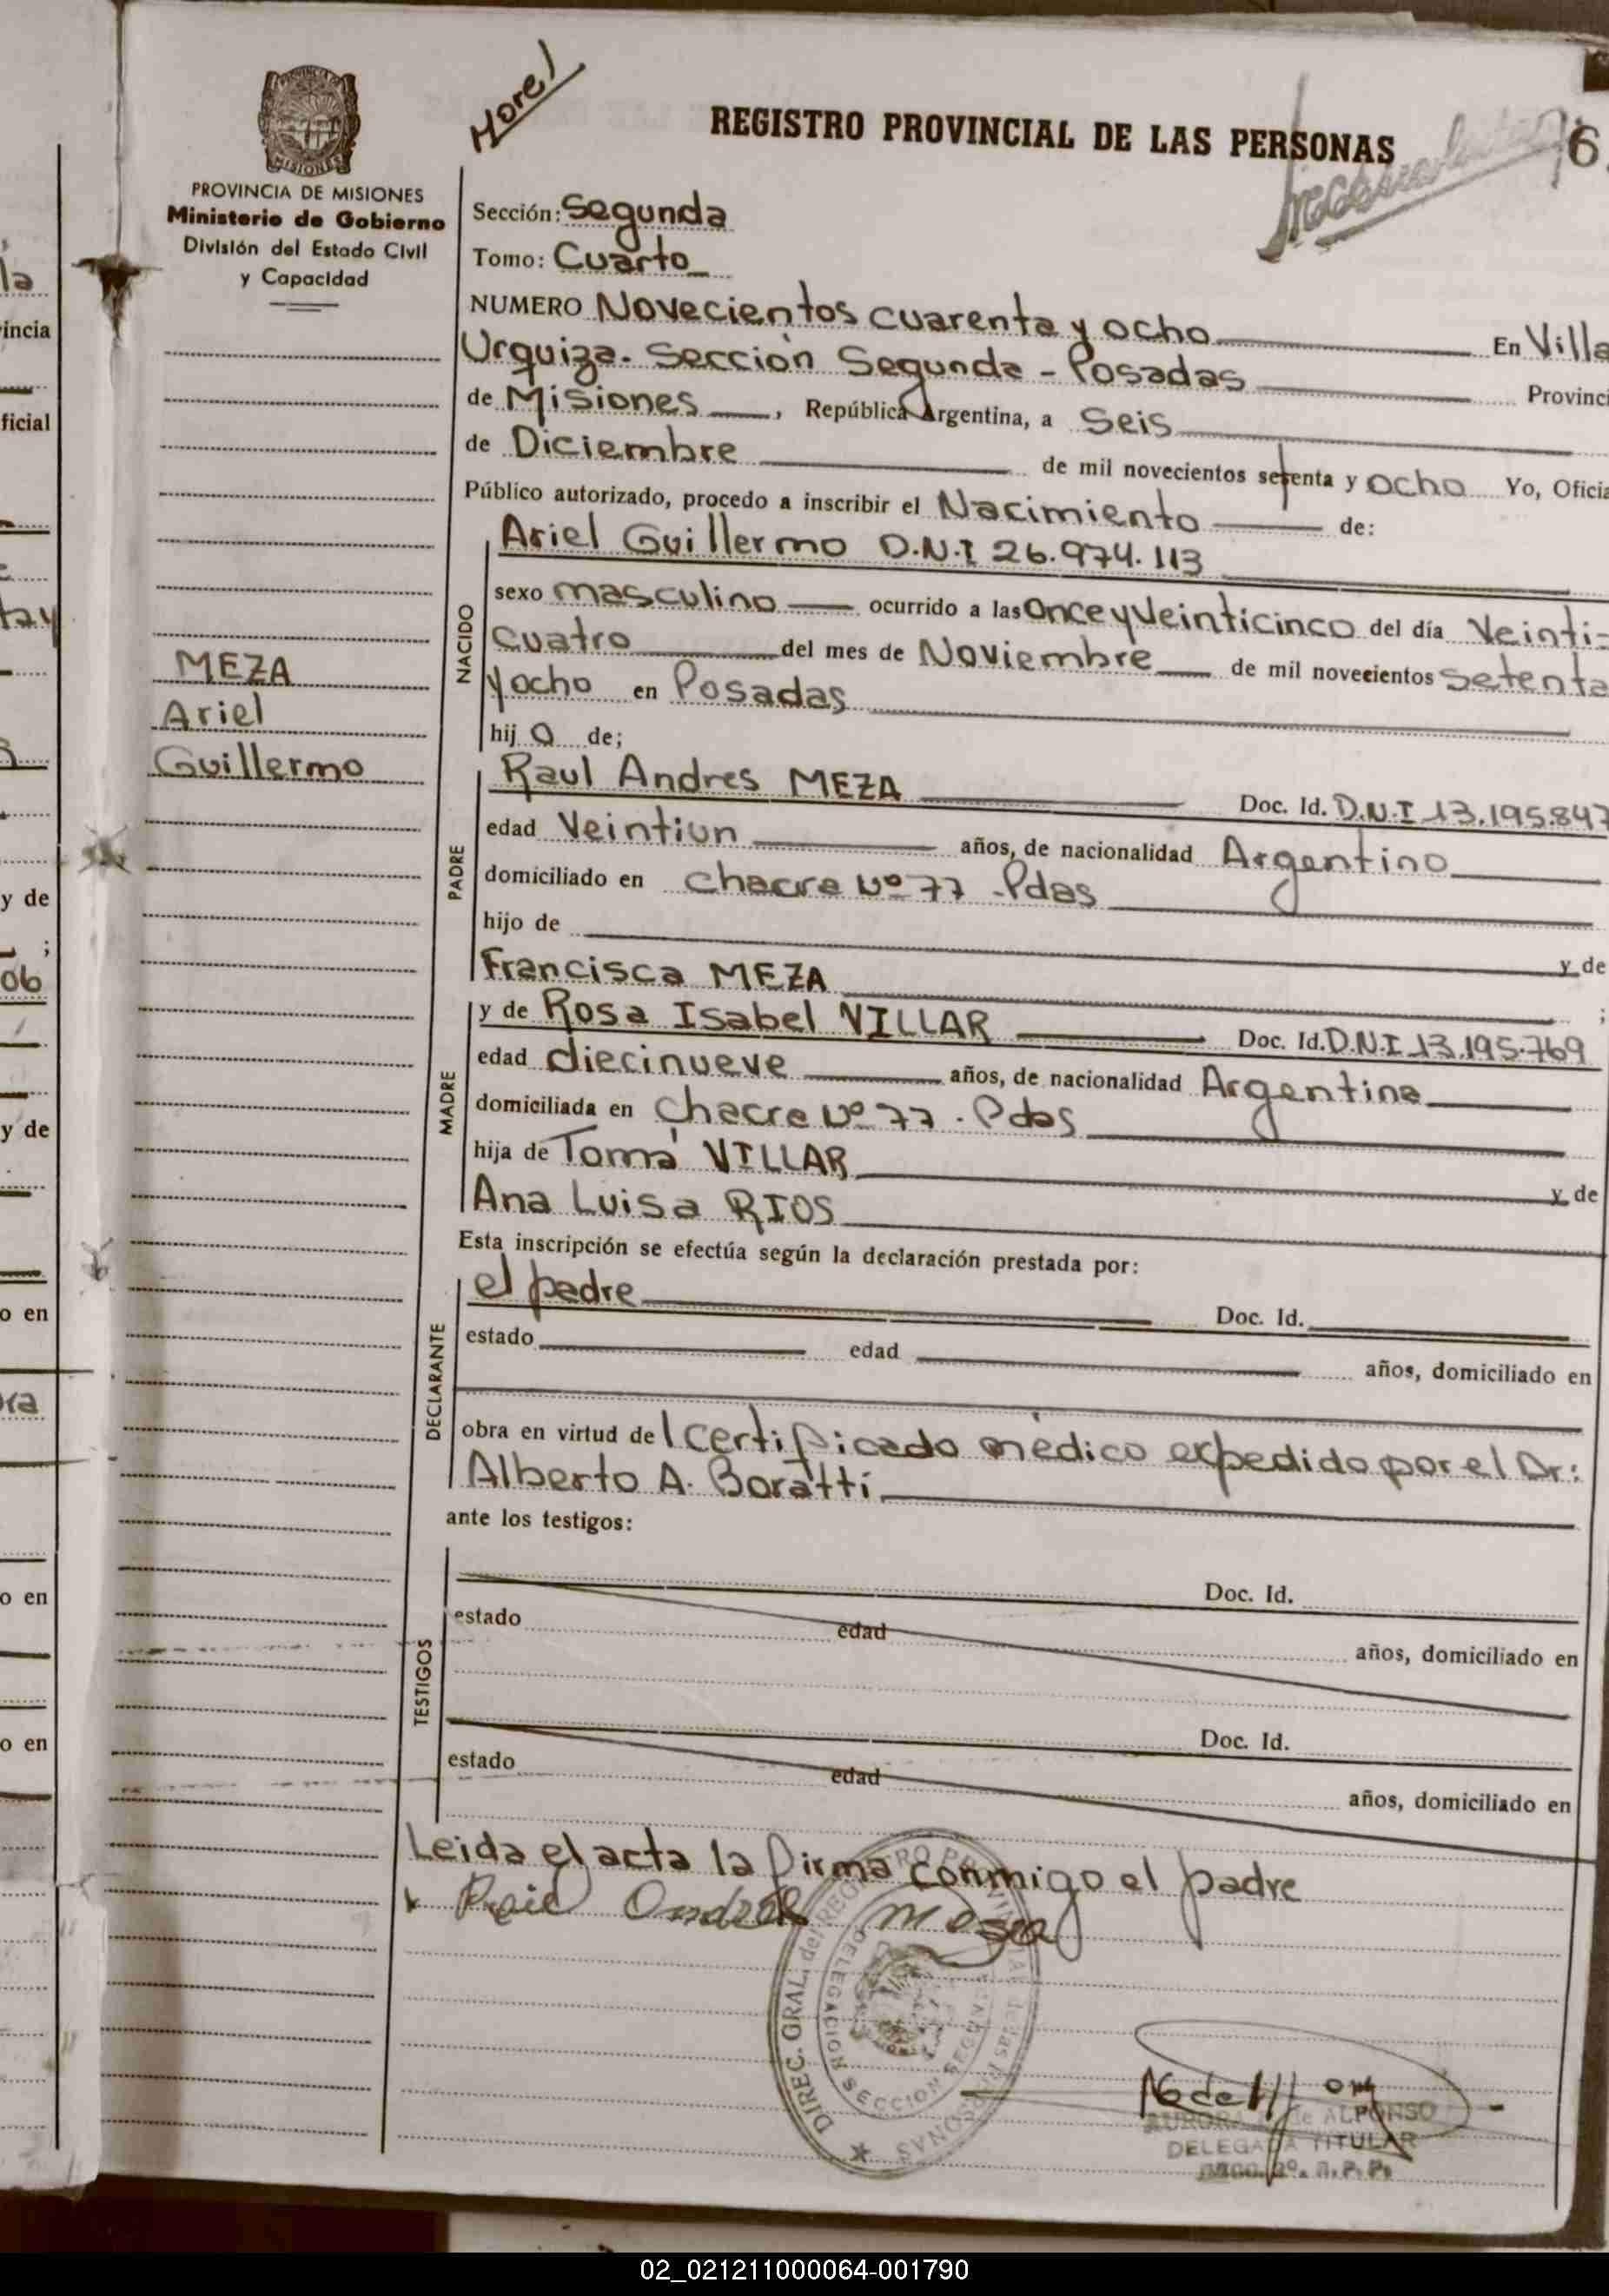 Hore!
REGISTRO PROVINCIAL DE LAS PERSONAS
6
MISIONES
PROVINCIA DE MISIONES
Ministerio de Gobierno
División del Estado Civil
y Capacidad
Sección: Segunda
Tomo: Cuarto
NUMERO Novecientos cuarenta y ocho En Villa
Urquiza. Sección Segunda - Posadas Provinci
de Misiones, República Argentina, a Seis
de Diciembre de mil novecientos setenta y ocho Yo, Oficia
Público autorizado, procedo a inscribir el Nacimiento de:
NACIDO
Ariel Guillermo D.N.I 26.974.113
sexo masculino ocurrido a las Once y Veinticinco del día Veinti-
cuatro del mes de Noviembre de mil novecientos Setenta
y ocho en Posadas
hij o de;
MEZA
Ariel
Guillermo
PADRE
Raul Andres MEZA Doc. Id. D.N.I 13.195.847
edad Veintiun años, de nacionalidad Argentino
domiciliado en chacra Nº 77 - Pdas
hijo de y de
Francisca MEZA ;
MADRE
y de Rosa Isabel VILLAR Doc. Id. D.N.I 13.195.769
edad diecinueve años, de nacionalidad Argentina
domiciliada en Chacra Nº 77 . Pdas
hija de Tomá VILLAR y de
Ana Luisa RIOS
Esta inscripción se efectúa según la declaración prestada por:
DECLARANTE
el padre Doc. Id.
estado edad años, domiciliado en
obra en virtud del certificado médico expedido por el Dr:
Alberto A. Boratti
ante los testigos:
TESTIGOS
Doc. Id.
estado edad años, domiciliado en
Doc. Id.
estado edad años, domiciliado en
Leida el acta la firma conmigo el padre
Andres Meza
DIREC. GRAL. del REGISTRO PROVINCIAL de las PERSONAS
DELEGACION SECCION
AURORA de ALFONSO
DELEGADA TITULAR
2º. R.P.P.
la
vincia
ficial
tay
y de
;
06
y de
o en
ra
o en
o en
02_021211000064-001790